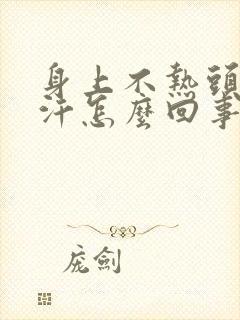 身上不熱頭
汗怎麼回事
庞劍